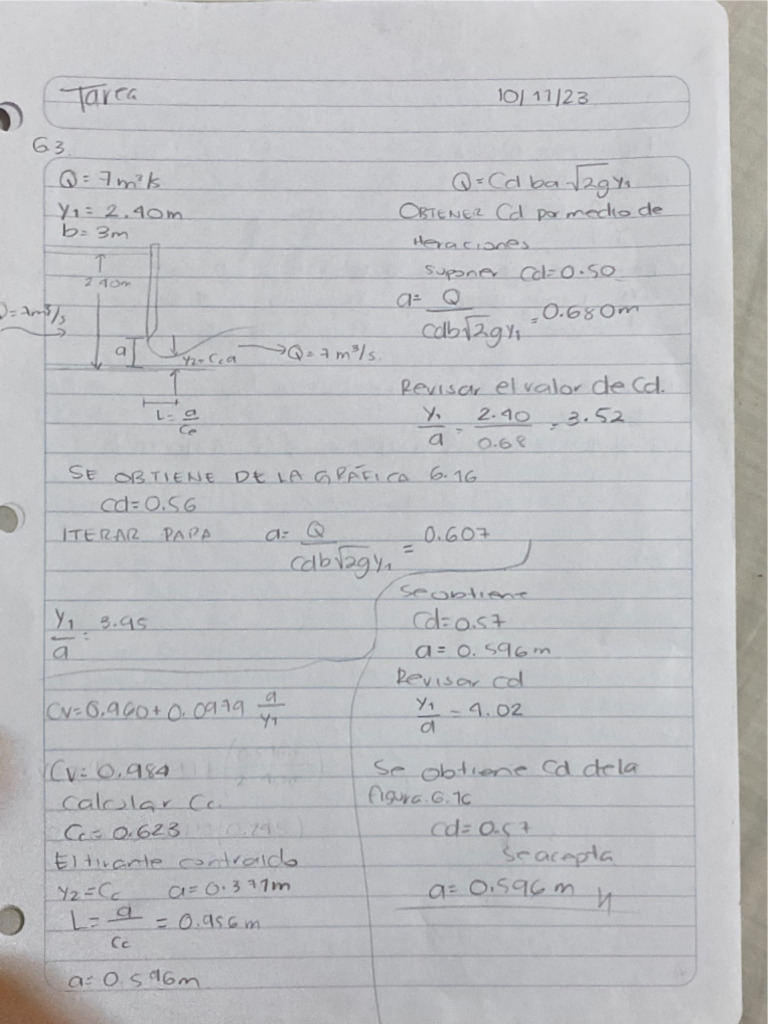 Tarea
10/11/23
63.
Q = 7m³/s
y₁ = 2.40m
b = 3m
2.40m
Q = 7m³/s
a
y₂ = Cc a
Q = 7 m³/s.
L = a/Cc
Q = Cd ba √2gy₁
OBTENER Cd por medio de
iteraciones
suponer Cd = 0.50
a = Q / Cdb√2gy₁ = 0.680m
Revisar el valor de Cd.
y₁/a = 2.40/0.68 = 3.52
SE OBTIENE DE LA GRÁFICA 6.16
Cd = 0.56
ITERAR PARA a = Q / Cdb√2gy₁ = 0.607
y₁/a = 3.95
Se obtiene
Cd = 0.57
a = 0.596m
Revisar Cd
y₁/a = 4.02
Se obtiene Cd de la
figura 6.16
Cd = 0.57
Se acepta
a = 0.596m
Cv = 0.960 + 0.0979 a/y₁
Cv = 0.984
Calcular Cc
Cc = 0.623
El tirante contraido
y₂ = Cc a = 0.371m
L = a/Cc = 0.956m
a = 0.596m